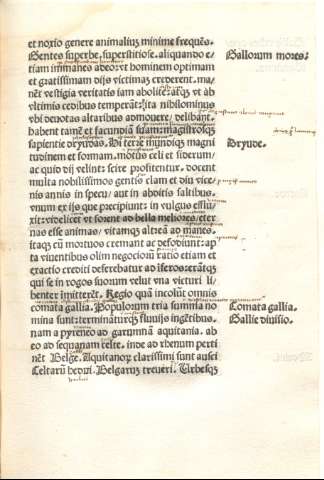 et noxio genere animaliũ minime frequẽs.
Gentes superbe, superstitiose. aliquando e/
Gallorum mores.
tiam immanes adeo: vt hominem optimam
et gratissimam dijs victimas crederent. ma/
nẽt vestigia veritatis iam abolite: atq̃ vt ab
vltimis cedibus temperãt: ita nihilominus
vbi deuotas altaribus admouere, delibant.
habent tamẽ et facundiã suam: magistrosq̃
sapientie dryudas. Hi terre mundiq̃ magni
Dryude.
tudinem et formam. motus celi et siderum/
ac quid dij velint: scire profitentur. docent
multa nobilissimos gentis clam et diu vice/
nis annis in specu / aut in abditis saltibus.
vnum ex ijs que precipiunt: in vulgus efflu/
xit: videlicet vt forent ad bella meliores / eter
nas esse animas / vitamq̃ alteã ad manes.
itaq̃ cũ mortuos cremant ac defodiunt: ap
ta viuentibus olim negocioru ratio etiam et
exactio crediti deferebatur ad iferos: erãtq̃
qui se in rogos suorum velut vna victuri li/
benter imitterẽt. Regio quã incolũt omnis
comata gallia. Populorum tria summa no
Comata gallia.
mina sunt: terminãturq̃ fluuijs ingẽtibus.
Gallie diuisio.
nam a pyreneo ad garunnã aquitania. ab
eo ad sequanam celte. inde ad rhenum perti
nẽt Belge. Aquitanoru clarissimi sunt ausci
Celtarũ hedui. Belgarum treueri. Urbesq̃